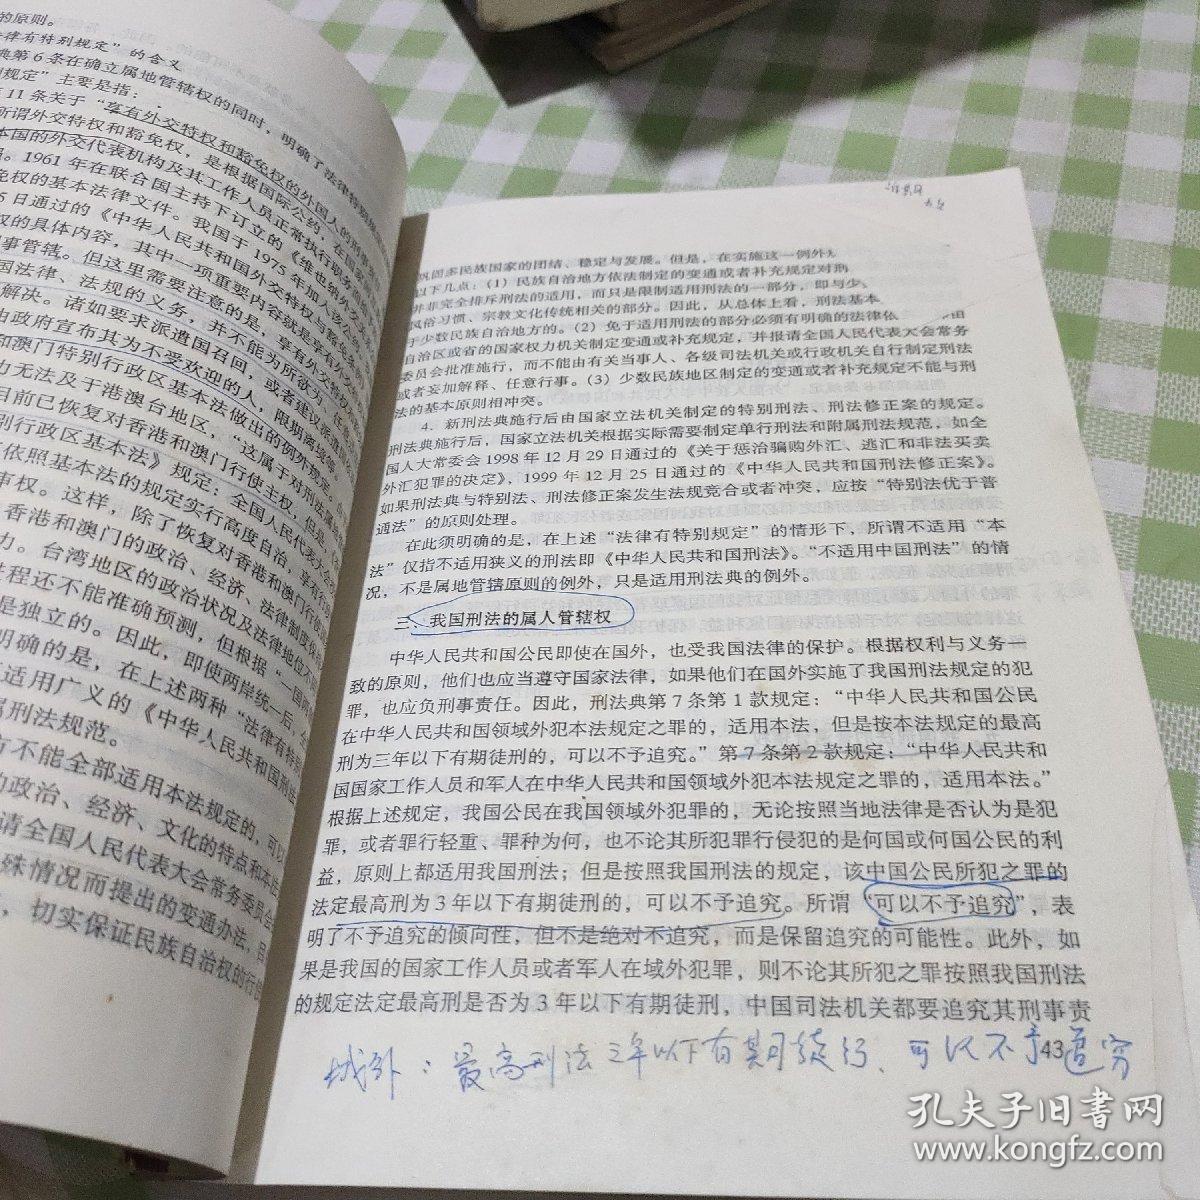 的原则。
律有特别规定”的含义
典第6条在确立属地管辖权的同时，明确了法律特别规
规定”主要是指：
11条关于“享有外交特权和豁免权的外国人的刑事
所谓外交特权和豁免权，是根据国际公约，在国家
本国的外交代表机构及其工作人员正常执行职务
1961年在联合国主持下订立的《维也纳外交关
免权的基本法律文件。我国于1975年加入该公约
5日通过的《中华人民共和国外交特权与豁免条
权的具体内容，其中一项重要内容就是享有外交
事管辖。但这里需要注意的是，享有外交特权
国法律、法规的义务，并不能为所欲为、任意
解决。诸如要求派遣国召回，或者建议派遣国
由政府宣布其为不受欢迎的人，限期离境等。
和澳门特别行政区基本法做出的例外规定。
力无法及于港澳台地区，“这属于对刑法属
目前已恢复对香港和澳门行使主权，但是
别行政区基本法》规定：全国人民代表大会
依照基本法的规定实行高度自治，享有
审权。这样，除了恢复对香港和澳门行使
香港和澳门的政治、经济、法律制度保
力。台湾地区的政治状况及法律地位不
进程还不能准确预测，但根据“一国两
是独立的。因此，即使两岸统一后，
明确的是，在上述两种“法律有特别
适用广义的《中华人民共和国刑法
属刑法规范。
方不能全部适用本法规定的，可以
的政治、经济、文化的特点和本法
请全国人民代表大会常务委员会
殊情况而提出的变通办法，目
，切实保证民族自治权的行使
巩固多民族国家的团结、稳定与发展。但是，在实施这一例外
以下几点：（1）民族自治地方依法制定的变通或者补充规定对刑
并非完全排斥刑法的适用，而只是限制适用刑法的一部分，即与少
风俗习惯、宗教文化传统相关的部分。因此，从总体上看，刑法基本
于少数民族自治地方的。（2）免于适用刑法的部分必须有明确的法律依
自治区或省的国家权力机关制定变通或补充规定，并报请全国人民代表大会常务
委员会批准施行，而不能由有关当事人、各级司法机关或行政机关自行制定刑法
或者妄加解释、任意行事。（3）少数民族地区制定的变通或者补充规定不能与刑
法的基本原则相冲突。
4．新刑法典施行后由国家立法机关制定的特别刑法、刑法修正案的规定。
刑法典施行后，国家立法机关根据实际需要制定单行刑法和附属刑法规范，如全
国人大常委会1998年12月29日通过的《关于惩治骗购外汇、逃汇和非法买卖
外汇犯罪的决定》，1999年12月25日通过的《中华人民共和国刑法修正案》。
如果刑法典与特别法、刑法修正案发生法规竞合或者冲突，应按“特别法优于普
通法”的原则处理。
在此须明确的是，在上述“法律有特别规定”的情形下，所谓不适用“本
法”仅指不适用狭义的刑法即《中华人民共和国刑法》。“不适用中国刑法”的情
况，不是属地管辖原则的例外，只是适用刑法典的例外。
三、我国刑法的属人管辖权
中华人民共和国公民即使在国外，也受我国法律的保护。根据权利与义务一
致的原则，他们也应当遵守国家法律，如果他们在国外实施了我国刑法规定的犯
罪，也应负刑事责任。因此，刑法典第7条第1款规定：“中华人民共和国公民
在中华人民共和国领域外犯本法规定之罪的，适用本法，但是按本法规定的最高
刑为三年以下有期徒刑的，可以不予追究。”第7条第2款规定：“中华人民共和
国国家工作人员和军人在中华人民共和国领域外犯本法规定之罪的，适用本法。”
根据上述规定，我国公民在我国领域外犯罪的，无论按照当地法律是否认为是犯
罪，或者罪行轻重、罪种为何，也不论其所犯罪行侵犯的是何国或何国公民的利
益，原则上都适用我国刑法；但是按照我国刑法的规定，该中国公民所犯之罪的
法定最高刑为3年以下有期徒刑的，可以不予追究。所谓“可以不予追究”，表
明了不予追究的倾向性，但不是绝对不追究，而是保留追究的可能性。此外，如
果是我国的国家工作人员或者军人在域外犯罪，则不论其所犯之罪按照我国刑法
的规定法定最高刑是否为3年以下有期徒刑，中国司法机关都要追究其刑事责
43
域外：最高刑法三年以下有其月徒行、可以不予追究
孔夫子旧书网
www.kongfz.com